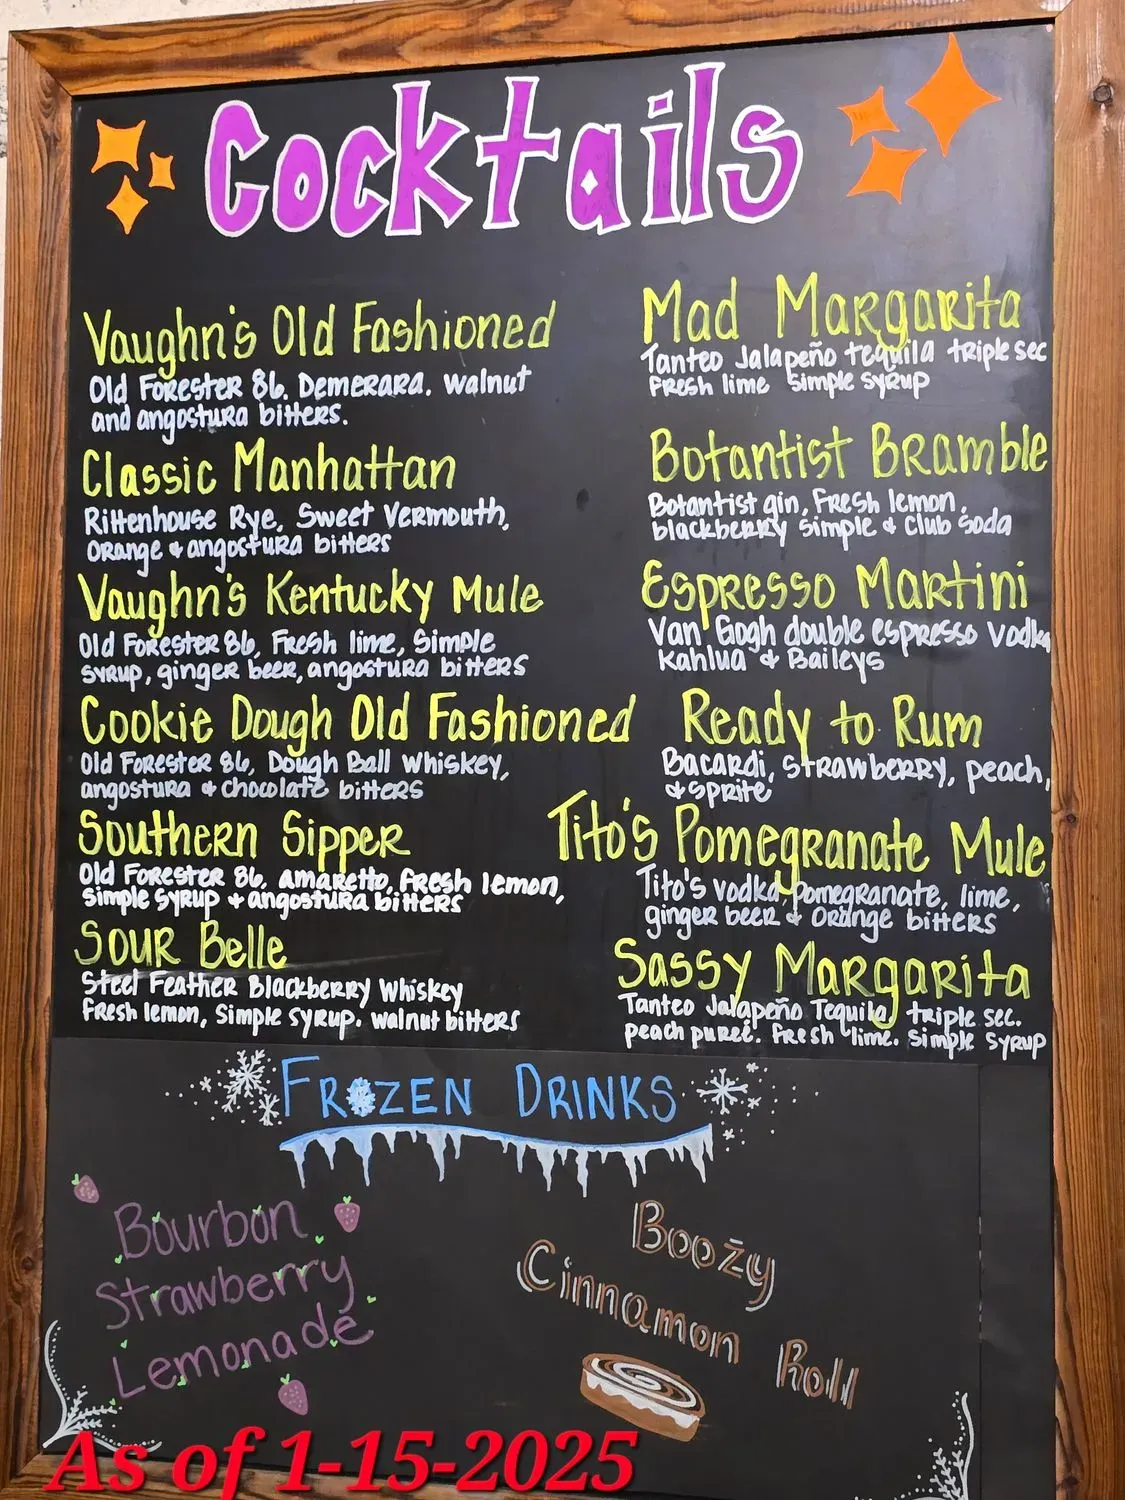 Cocktails
Vaughn's Old Fashioned
Old Forester 86. Demerara. walnut
and angostura bitters.
Classic Manhattan
Rittenhouse Rye, Sweet Vermouth,
Orange & angostura bitters
Vaughn's Kentucky Mule
Old Forester 86, Fresh lime, Simple
syrup, ginger beer, angostura bitters
Cookie Dough Old Fashioned
Old Forester 86, Dough Ball Whiskey,
angostura & chocolate bitters
Southern Sipper
Old Forester 86, amaretto, fresh lemon,
simple syrup + angostura bitters
Sour Belle
Steel Feather Blackberry Whiskey
Fresh lemon, Simple syrup. walnut bitters
Mad Margarita
Tanteo Jalapeño tequila triple sec
Fresh lime Simple syrup
Botantist Bramble
Botantist gin, Fresh lemon,
blackberry simple & Club Soda
Espresso Martini
Van Gogh double espresso vodka
Kahlua & Baileys
Ready to Rum
Bacardi, strawberry, peach,
& Sprite
Tito's Pomegranate Mule
Tito's vodka, Pomegranate, lime,
ginger beer & Orange bitters
Sassy Margarita
Tanteo Jalapeño Tequila, triple sec.
peach pureé. Fresh lime. Simple Syrup
Frozen Drinks
Bourbon
Strawberry
Lemonade
Boozy
Cinnamon Roll
As of 1-15-2025